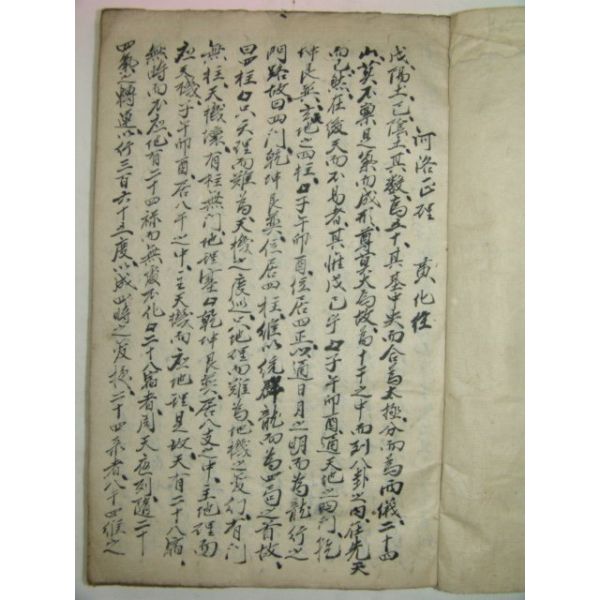 河洛正經 黃化住
戊陽土己陰土其數爲五十其基中央而合爲太極分而爲兩儀二十四
山莫不稟是築而成形尊莫大焉故爲十干之中而列八卦之內在先天
而已然在後天而不易者其惟戊己乎子午卯酉通天地之四門乾
坤艮巽立地之四柱子午卯酉位居四正以通日月之明而爲龍行之
門路故曰四門乾坤艮巽位居四柱維以統群龍而爲四局之首故
曰四柱只天理而難爲天機之度巡只地理而難爲地機之发行有門
無柱天機濂有柱無門地理塞乾坤艮巽居八支之中主地理而
应天機子午卯酉居八干之中主天機而应地理是故天有二十八宿
無時而不应地有二十四祿而無发不化二十八宿者周天应列隨二十
四氣之轉運以行三百六十五度以成四時之发挼二十四氣者八十四候之